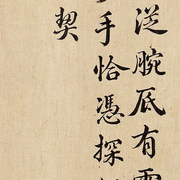 従腕底有
手恰憑探
契